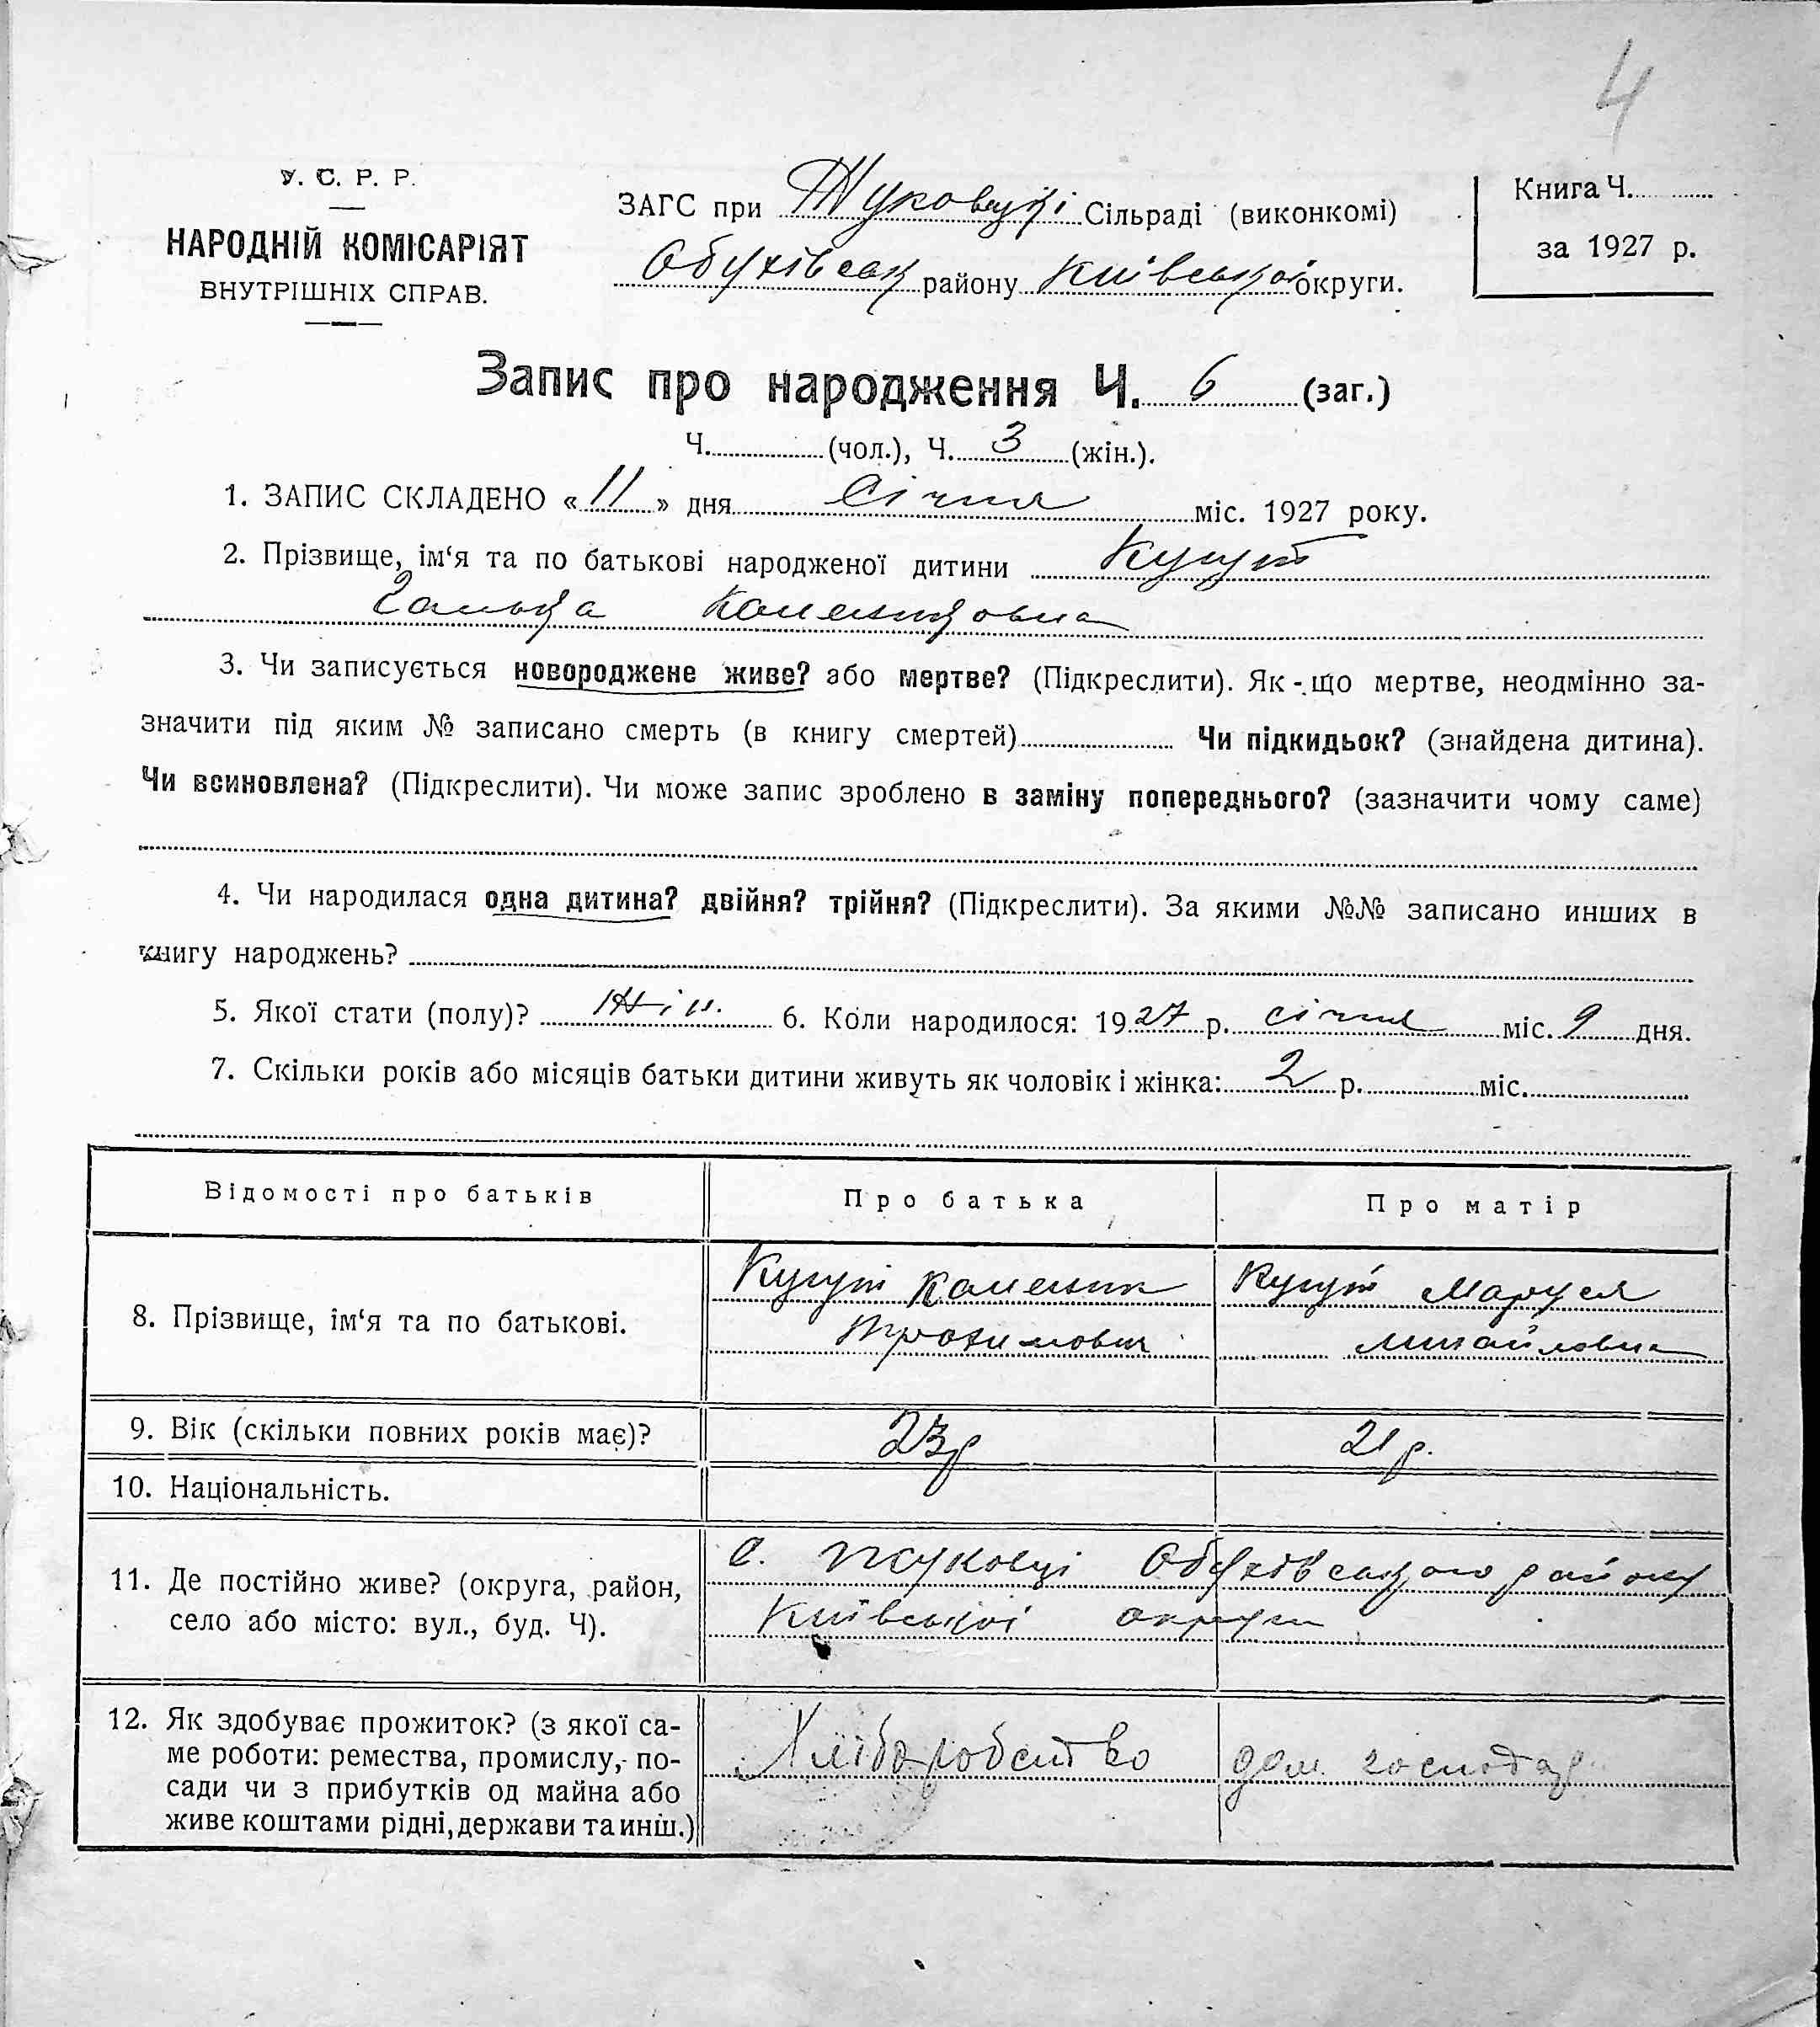 4
У. С. Р. Р.
НАРОДНІЙ КОМІСАРІЯТ
ВНУТРІШНІХ СПРАВ.
ЗАГС при Жуковецкі Сільраді (виконкомі)
Обухівськ району Київської округи.
Книга Ч.
за 1927 р.
Запис про народження Ч. 6 (заг.)
Ч. (чол.), Ч. 3 (жін.).
1. ЗАПИС СКЛАДЕНО « 11 » дня Січня міс. 1927 року.
2. Прізвище, ім‘я та по батькові народженої дитини Кугут
Галька
3. Чи записується новороджене живе? або мертве? (Підкреслити). Як-що мертве, неодмінно за-
значити під яким № записано смерть (в книгу смертей) Чи підкидьок? (знайдена дитина).
Чи всиновлена? (Підкреслити). Чи може запис зроблено в заміну попереднього? (зазначити чому саме)
4. Чи народилася одна дитина? двійня? трійня? (Підкреслити). За якими №№ записано инших в
книгу народжень?
5. Якої стати (полу)? Жін. 6. Коли народилося: 1927 р. січня міс. 9 дня.
7. Скільки років або місяців батьки дитини живуть як чоловік і жінка: 2 р. міс.
Відомості про батьків Про батька Про матір
8. Прізвище, ім‘я та по батькові.
Кугут Каленик Кугут Маруся
Трохимович Михайловна
9. Вік (скільки повних років має)? 23р 21р.
10. Національність.
11. Де постійно живе? (округа, район,
село або місто: вул., буд. Ч).
с. Жуковці Обухівського району
Київської округи
12. Як здобуває прожиток? (з якої са-
ме роботи: ремества, промислу, по-
сади чи з прибутків од майна або
живе коштами рідні, держави та инш.)
Хліборобство дом. господар